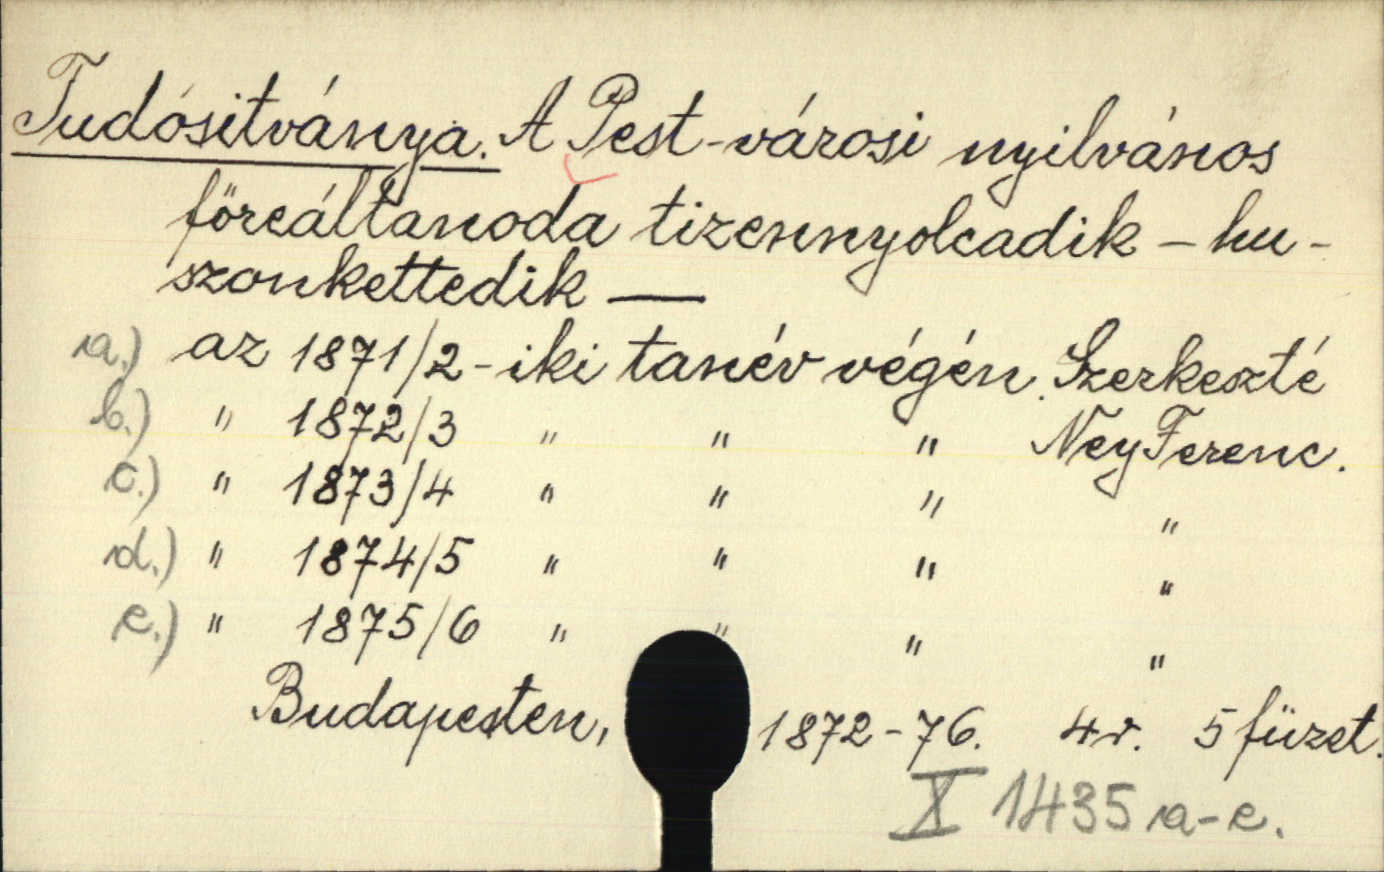 Tudósitványa. A Pest-városi nyilvános
főreáltanoda tizennyolcadik – hu-
szonkettedik —
a.) az 1871/2-iki tanév végén. Szerkeszté
b.) " 1872/3 " " " Ney Ferenc.
c.) " 1873/4 " " " "
d.) " 1874/5 " " " "
e.) " 1875/6 " " " "
Budapesten, 1872-76. 4r. 5 füzet.
X 1435 a-e.